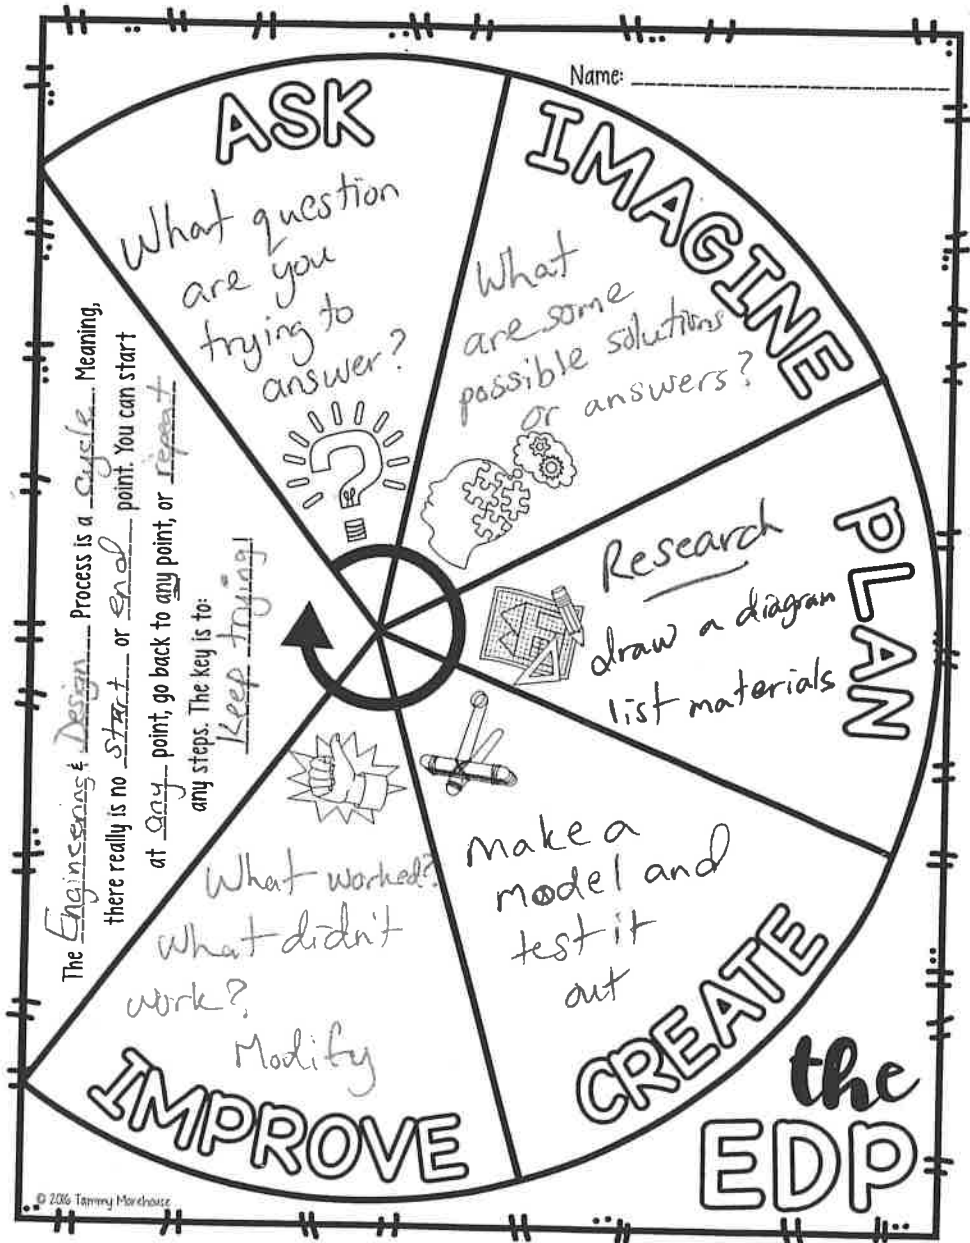 Name:
ASK
What question
are you
trying to
answer?
IMAGINE
What
are some
possible solutions
or answers?
PLAN
Research
draw a diagram
list materials
CREATE
make a
model and
test it
out
IMPROVE
What worked?
What didn't
work?
Modify
The Engineering & Design Process is a cycle. Meaning,
there really is no start or end point. You can start
at any point, go back to any point, or repeat
any steps. The key is to:
Keep trying!
the
EDP
© 2016 Tammy Morehouse